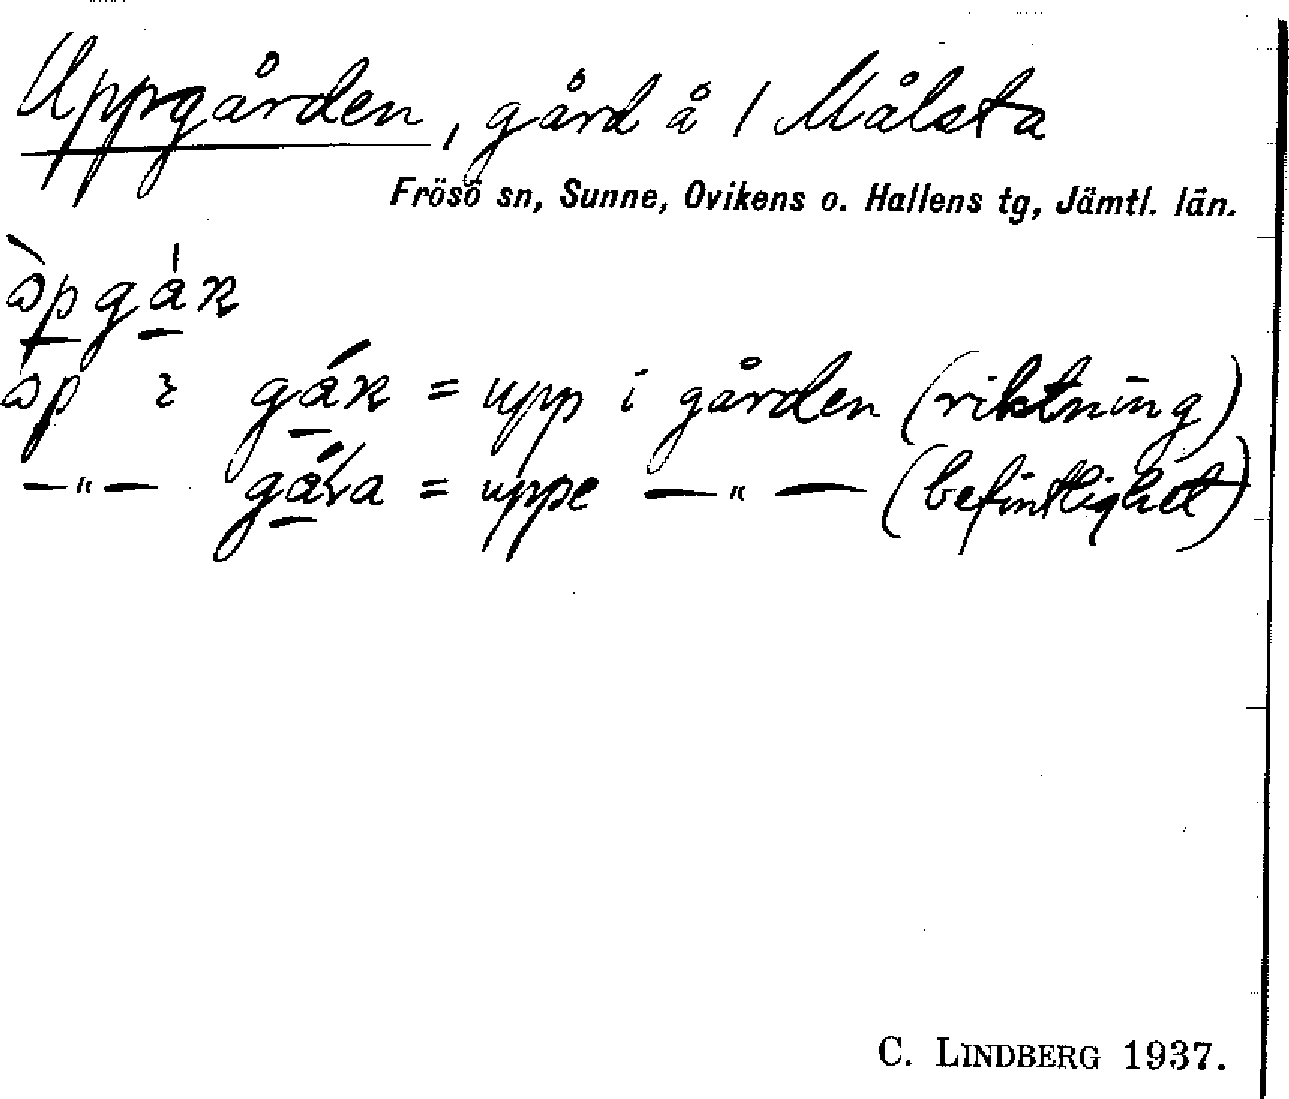 Uppgården, gård å 1 Målsta
Frösö sn, Sunne, Ovikens o. Hallens tg, Jämtl. län.
= upp i gården (riktning)
—"— = uppe —"— (befintlighet)
C. LINDBERG 1937.